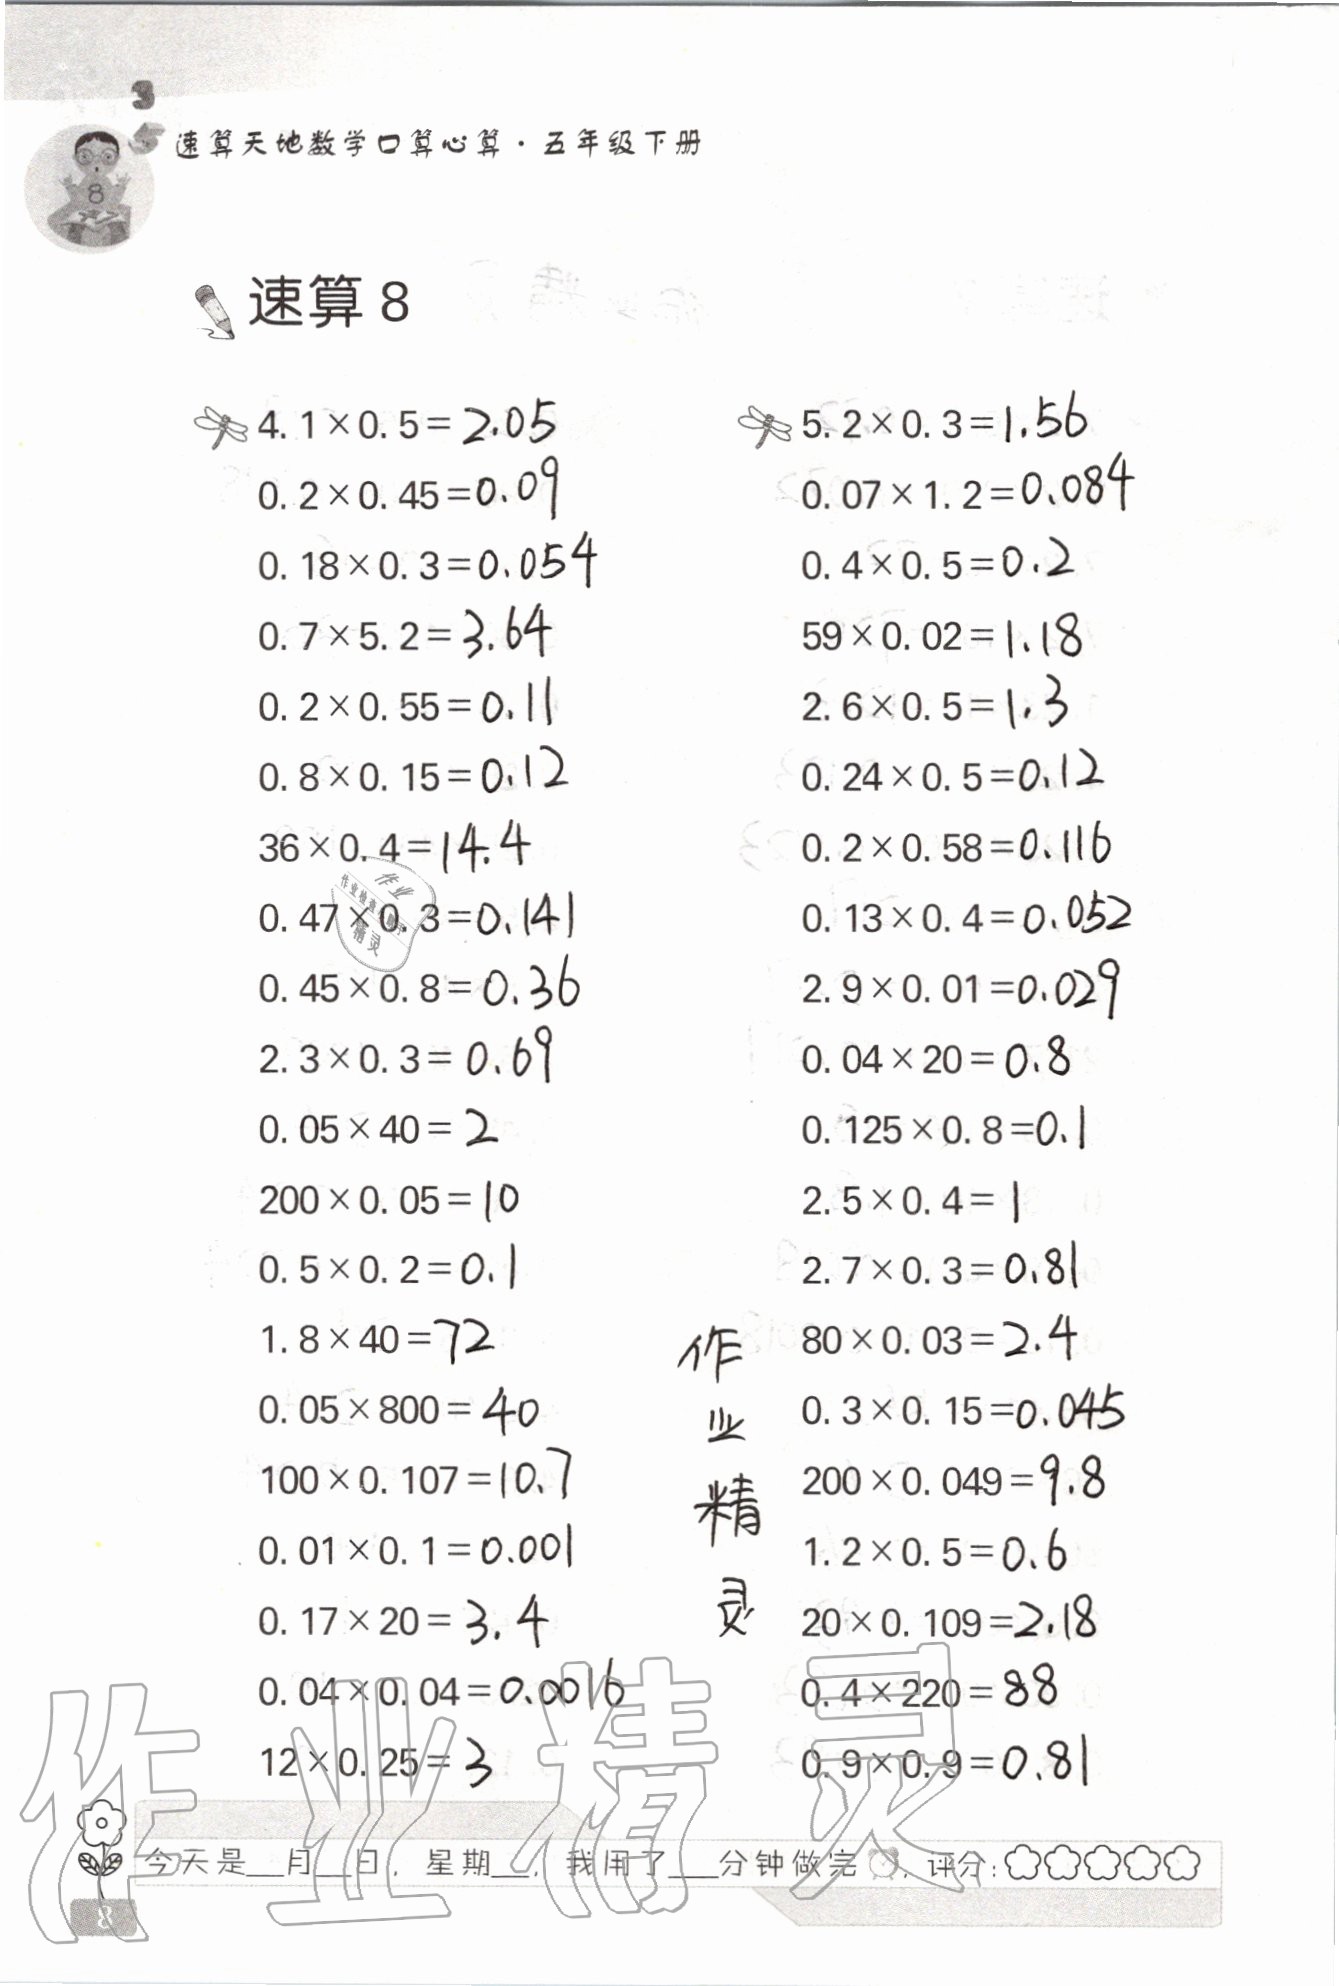 速算天地数学口算心算·五年级下册
8
速算 8
4.1×0.5=2.05
0.2×0.45=0.09
0.18×0.3=0.054
0.7×5.2=3.64
0.2×0.55=0.11
0.8×0.15=0.12
36×0.4=14.4
0.47×0.3=0.141
0.45×0.8=0.36
2.3×0.3=0.69
0.05×40=2
200×0.05=10
0.5×0.2=0.1
1.8×40=72
0.05×800=40
100×0.107=10.7
0.01×0.1=0.001
0.17×20=3.4
0.04×0.04=0.0016
12×0.25=3
5.2×0.3=1.56
0.07×1.2=0.084
0.4×0.5=0.2
59×0.02=1.18
2.6×0.5=1.3
0.24×0.5=0.12
0.2×0.58=0.116
0.13×0.4=0.052
2.9×0.01=0.029
0.04×20=0.8
0.125×0.8=0.1
2.5×0.4=1
2.7×0.3=0.81
80×0.03=2.4
0.3×0.15=0.045
200×0.049=9.8
1.2×0.5=0.6
20×0.109=2.18
0.4×220=88
0.9×0.9=0.81
作业精灵
作业
精灵
作业精灵
今天是__月__日，星期__，我用了___分钟做完，评分：
8